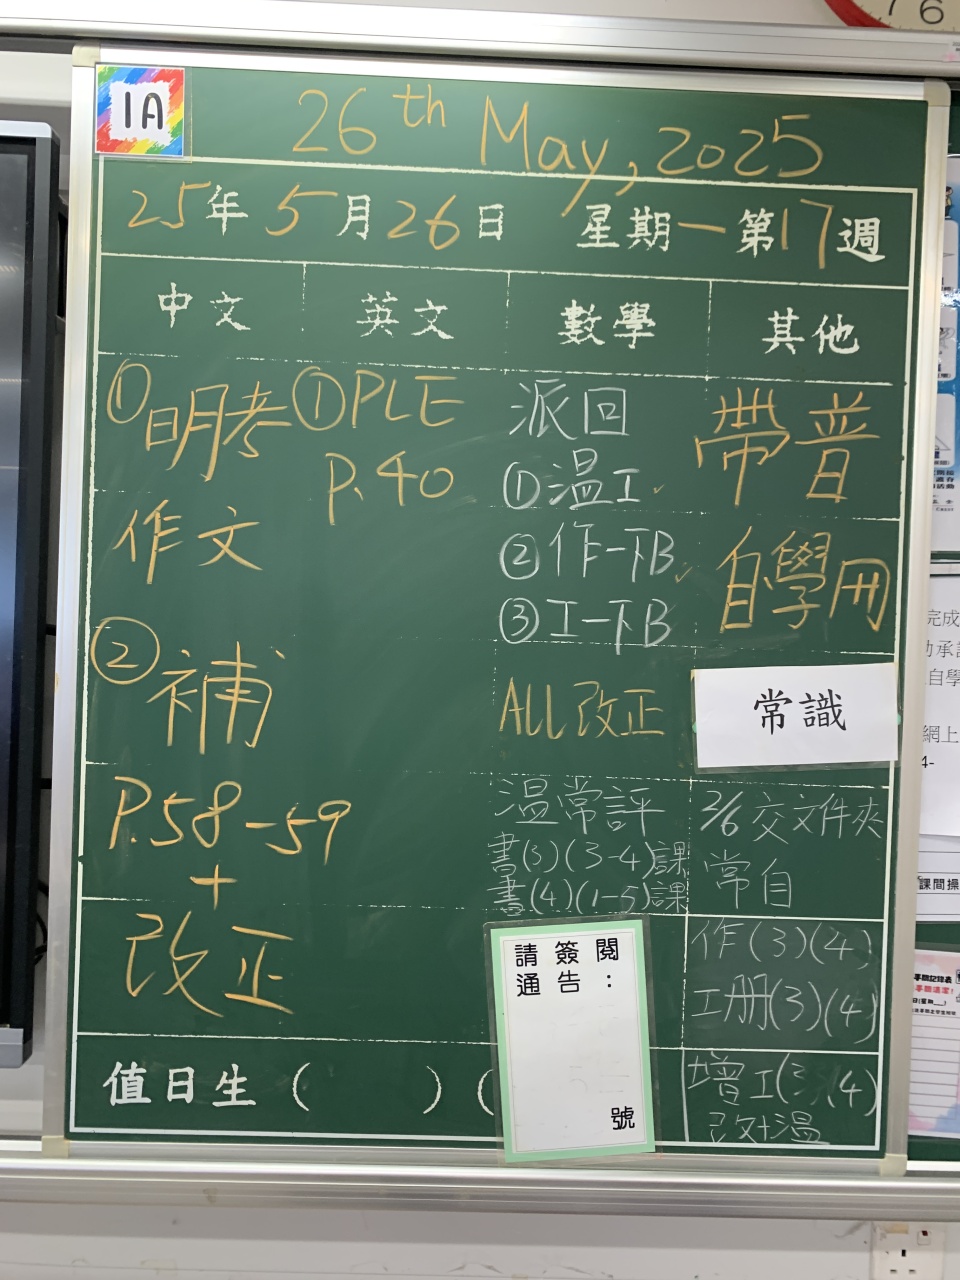 1A
26th May, 2025
25年5月26日 星期一第17週
中文 英文 數學 其他
①明考
作文
②補
P.58-59
+
改正
①PLE
P.40
派回
①溫工✓
②作一下B✓
③工一下B
ALL改正
溫常評
書(3)(3-4)課
書(4)(1-5)課
帶普
自學冊
常識
2/6交文件夾
常自
作(3)(4)
工册(3)(4)
增工(3)(4)
改+溫
請簽閱
通告:
號
值日生( )(
完成
自學
網上
課間操
7 6